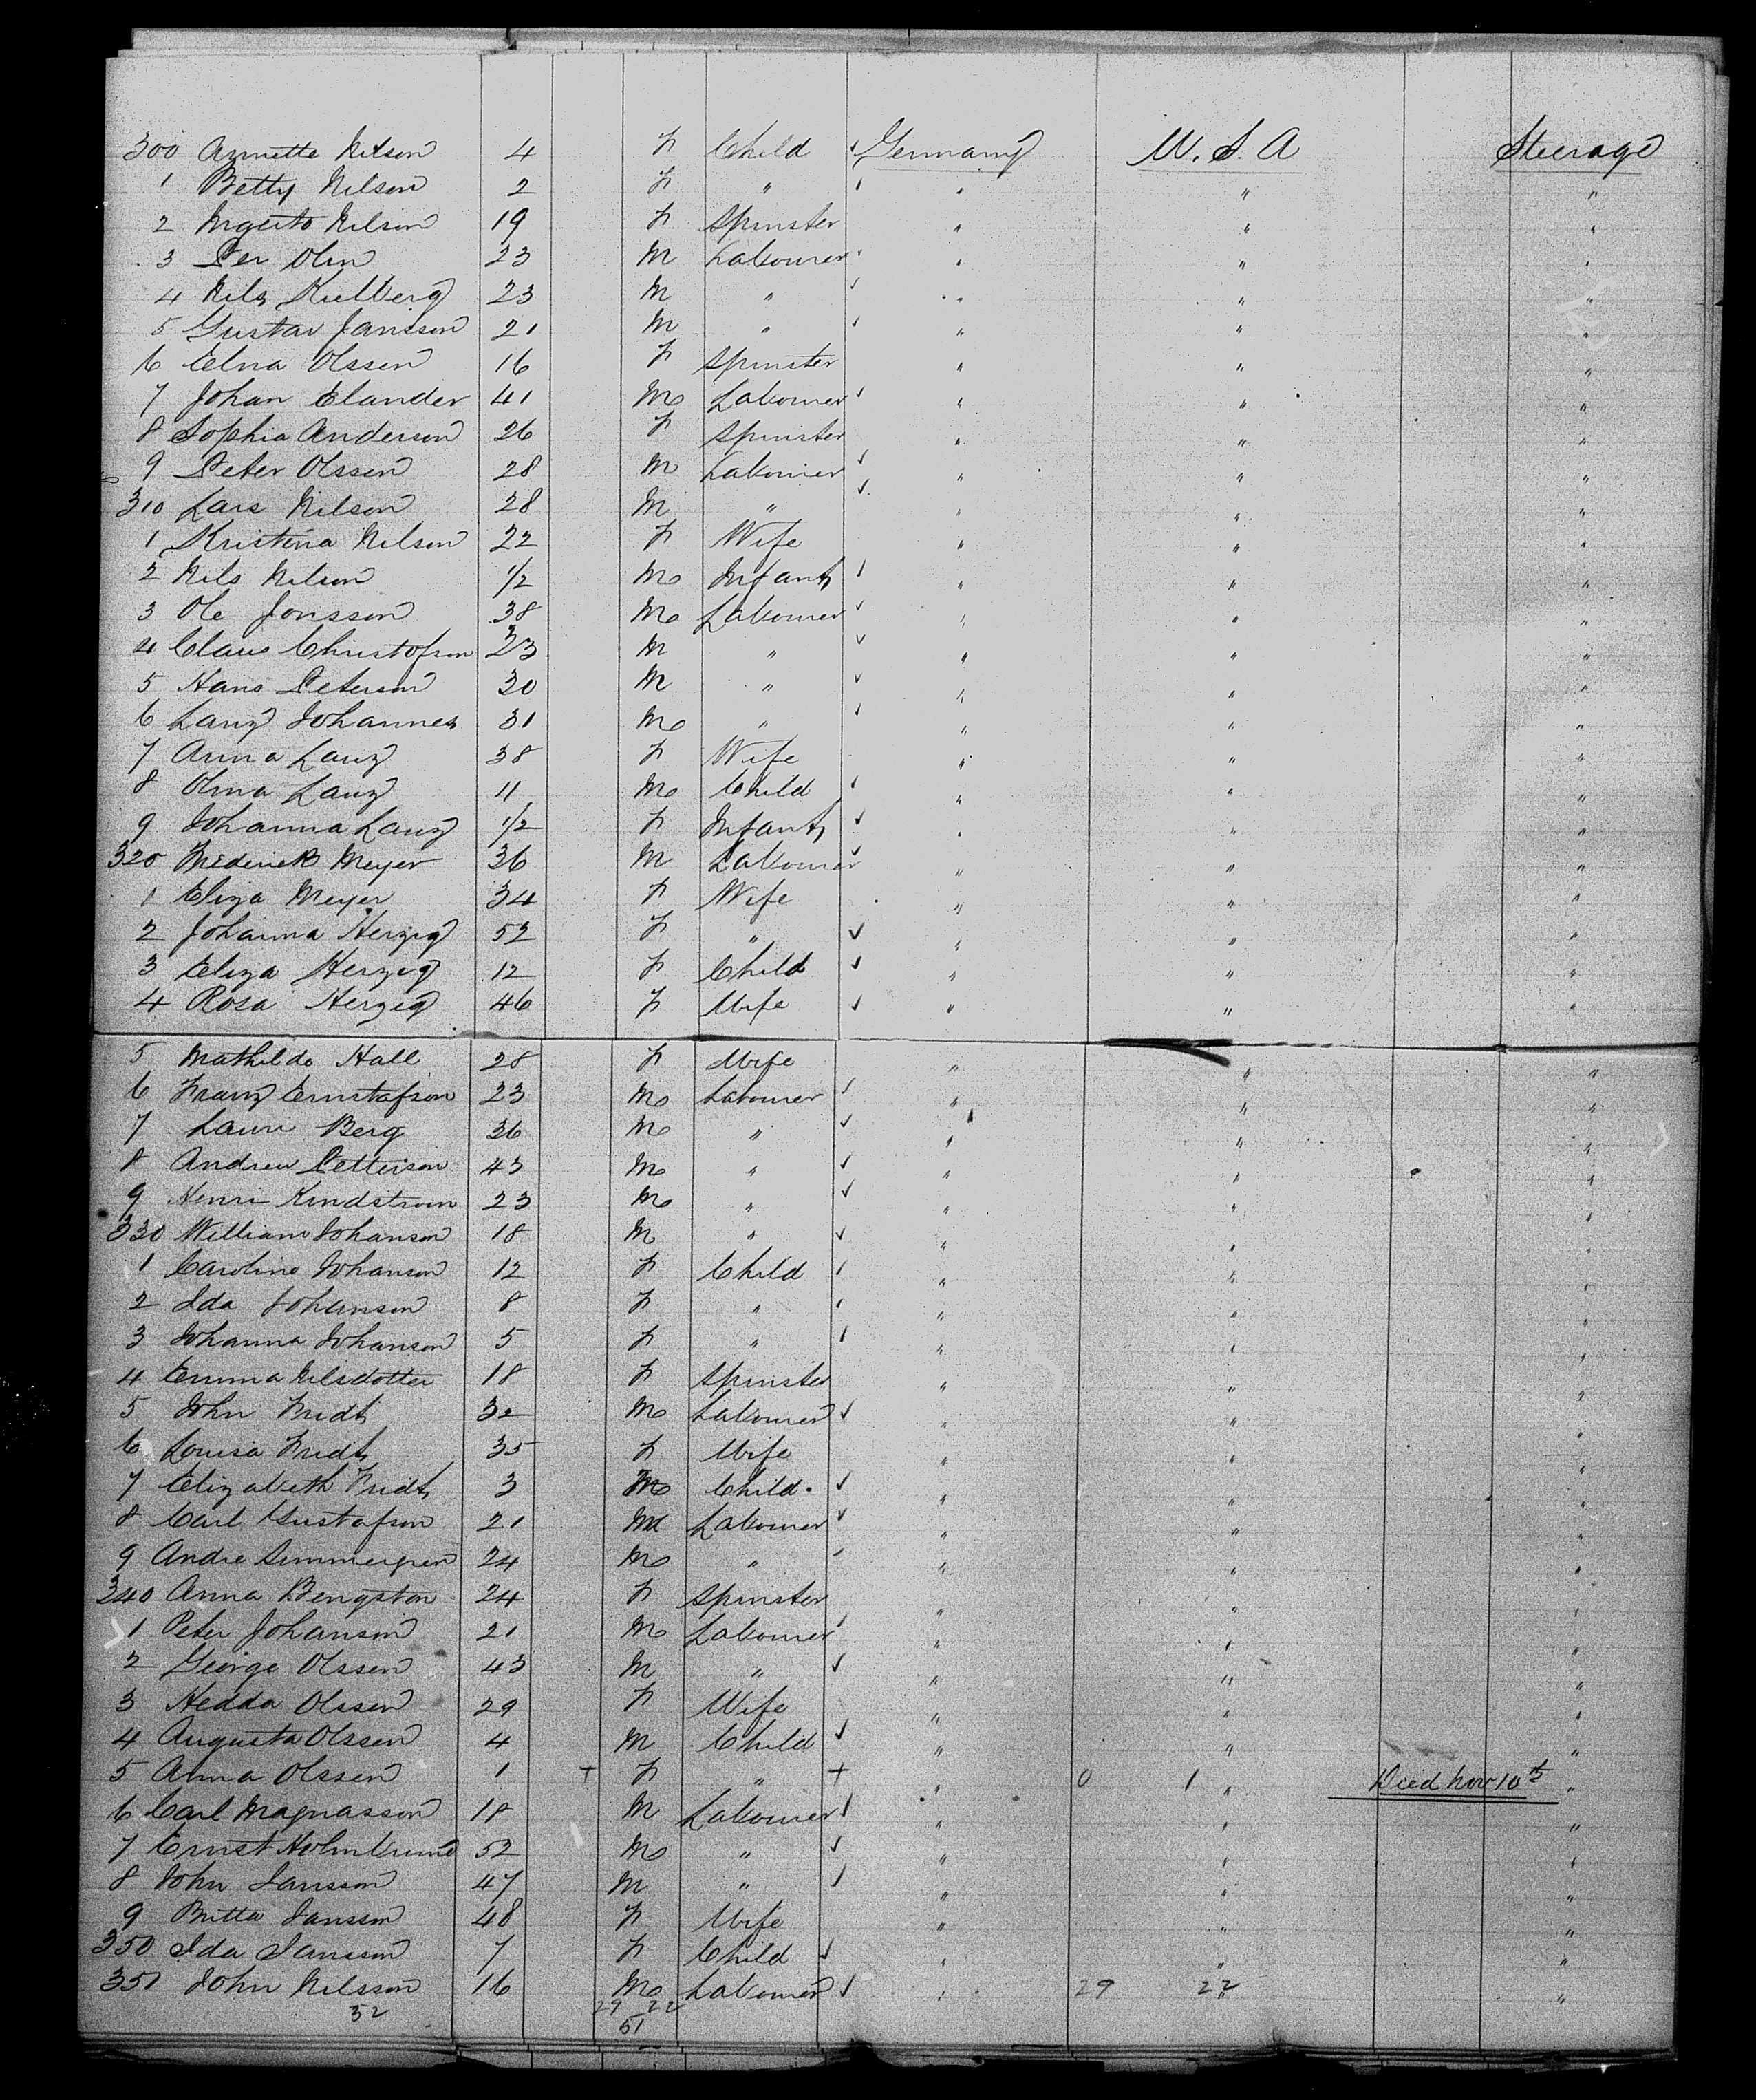 300 Annette Nilson 4 F Child ✓ Germany U.S.A Steerage
1 Betty Nilson 2 F " ✓ " " "
2 Ingerto Nilson 19 F Spinster " " "
3 Per Olin 23 M Labourer ✓ " " "
4 Nils Kulberg 23 M " ✓ " " "
5 Gustav Jansson 21 M " ✓ " " "
6 Elna Olssen 16 F Spinster " " "
7 Johan Elander 41 M Labourer ✓ " " "
8 Sophia Anderson 26 F Spinster " " "
9 Peter Olssen 28 M Labourer ✓ " " "
310 Lars Nilson 28 M " ✓ " " "
1 Kristina Nilson 22 F Wife " " "
2 Nils Nilson 1/2 M Infant ✓ " " "
3 Ole Jonsson 38 M Labourer ✓ " " "
4 Claus Christofson 23 M " ✓ " " "
5 Hans Peterson 30 M " ✓ " " "
6 Lanz Johannes 31 M " ✓ " " "
7 Anna Lanz 38 F Wife " " "
8 Olma Lanz 11 M Child ✓ " " "
9 Johanna Lanz 1/2 F Infant ✓ " " "
320 Frederick Meyer 36 M Labourer ✓ " " "
1 Eliza Meyer 34 F Wife " " "
2 Johanna Herzig 52 F " ✓ " " "
3 Eliza Herzig 12 F Child ✓ " " "
4 Rosa Herzig 46 F Wife ✓ " " "
5 Mathilde Hall 28 F Wife " " "
6 Franz Ernstafson 23 M Labourer ✓ " " "
7 Laur Berg 36 M " ✓ " " "
8 Andrew Petterson 43 M " ✓ " " "
9 Henri Kindstrom 23 M " ✓ " " "
330 William Johanson 18 M " ✓ " " "
1 Caroline Johanson 12 F Child ✓ " " "
2 Ida Johanson 8 F " ✓ " " "
3 Johanna Johanson 5 F " ✓ " " "
4 Emma Nilsdotter 18 F Spinster " " "
5 John Fridt 32 M Labourer ✓ " " "
6 Louisa Fridt 35 F Wife " " "
7 Elizabeth Fridt 3 M Child ✓ " " "
8 Carl Gustafson 21 M Labourer ✓ " " "
9 Andre Simmergren 24 M " ✓ " " "
340 Anna Bengston 24 F Spinster " " "
1 Peter Johanson 21 M Labourer ✓ " " "
2 George Olssen 43 M " ✓ " " "
3 Hedda Olssen 29 F Wife " " "
4 Augusta Olssen 4 M Child ✓ " " "
5 Anna Olssen 1 + F " + " 0 1 " Died Nov 10th "
6 Carl Magnasson 18 M Labourer ✓ " " "
7 Ernst Holmlund 52 M " ✓ " " "
8 John Jansson 47 M " ✓ " " "
9 Britta Jansson 48 F Wife " " "
350 Ida Jansson 7 F Child ✓ " " "
351 John Nilsson 16 M Labourer ✓ " 29 22 " "
52 29 22
51